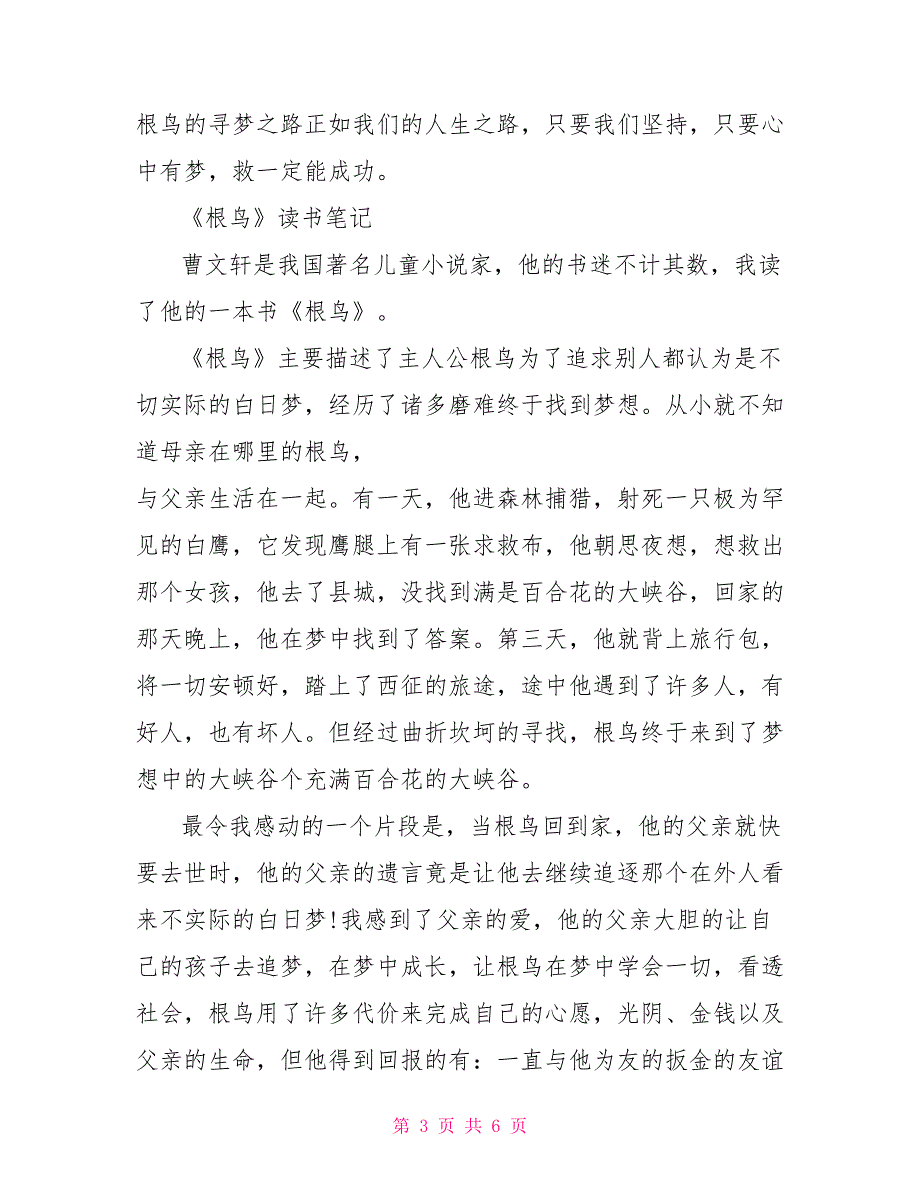 根鸟的寻梦之路正如我们的人生之路，只要我们坚持，只要心
中有梦，救一定能成功。
《根鸟》读书笔记
曹文轩是我国著名儿童小说家，他的书迷不计其数，我读
了他的一本书《根鸟》。
《根鸟》主要描述了主人公根鸟为了追求别人都认为是不
切实际的白日梦，经历了诸多磨难终于找到梦想。从小就不知
道母亲在哪里的根鸟，
与父亲生活在一起。有一天，他进森林捕猎，射死一只极为罕
见的白鹰，它发现鹰腿上有一张求救布，他朝思夜想，想救出
那个女孩，他去了县城，没找到满是百合花的大峡谷，回家的
那天晚上，他在梦中找到了答案。第三天，他就背上旅行包，
将一切安顿好，踏上了西征的旅途，途中他遇到了许多人，有
好人，也有坏人。但经过曲折坎坷的寻找，根鸟终于来到了梦
想中的大峡谷个充满百合花的大峡谷。
最令我感动的一个片段是，当根鸟回到家，他的父亲就快
要去世时，他的父亲的遗言竟是让他去继续追逐那个在外人看
来不实际的白日梦!我感到了父亲的爱，他的父亲大胆的让自
己的孩子去追梦，在梦中成长，让根鸟在梦中学会一切，看透
社会，根鸟用了许多代价来完成自己的心愿，光阴、金钱以及
父亲的生命，但他得到回报的有：一直与他为友的扳金的友谊
第 3 页 共 6 页